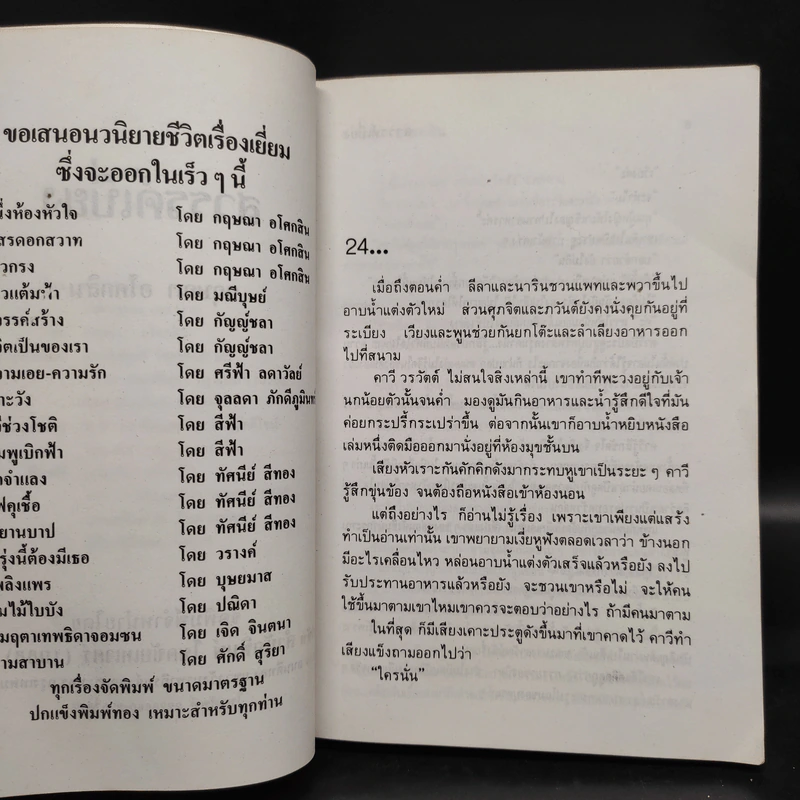 ขอเสนอนวนิยายชีวิตเรื่องเยี่ยม
ซึ่งจะออกในเร็ว ๆ นี้
นึ่งห้องหัวใจ โดย กฤษณา อโศกสิน
สรดอกสวาท โดย กฤษณา อโศกสิน
วกรง โดย กฤษณา อโศกสิน
วแต้มฟ้า โดย มณีบุษย์
วรรค์สร้าง โดย กัญญ์ชลา
ิตเป็นของเรา โดย กัญญ์ชลา
ามเอย-ความรัก โดย ศรีฟ้า ลดาวัลย์
าะวัง โดย จุลลดา ภักดีภูมินทร์
ีช่วงโชติ โดย สีฟ้า
มพูเบิกฟ้า โดย สีฟ้า
จำแลง โดย ทัศนีย์ สีทอง
ฟคุเชื้อ โดย ทัศนีย์ สีทอง
ยานบาป โดย ทัศนีย์ สีทอง
รุ่งนี้ต้องมีเธอ โดย วรางค์
พลิงแพร โดย บุษยมาส
มไม้ใบบัง โดย ปณิดา
มฤตาเทพธิดาจอมซน โดย เจิด จินตนา
ามสาบาน โดย ศักดิ์ สุริยา
ทุกเรื่องจัดพิมพ์ ขนาดมาตรฐาน
ปกแข็งพิมพ์ทอง เหมาะสำหรับทุกท่าน
24...
เมื่อถึงตอนค่ำ ลีลาและนารินชวนแพทและพวาขึ้นไป
อาบน้ำแต่งตัวใหม่ ส่วนศุภจิตและภวันต์ยังคงนั่งคุยกันอยู่ที่
ระเบียง เวียงและพูนช่วยกันยกโต๊ะและลำเลียงอาหารออก
ไปที่สนาม
คาวี วรวัตต์ ไม่สนใจสิ่งเหล่านี้ เขาทำทีพะวงอยู่กับเจ้า
นกน้อยตัวนั้นจนค่ำ มองดูมันกินอาหารและน้ำรู้สึกดีใจที่มัน
ค่อยกระปรี้กระเปร่าขึ้น ต่อจากนั้นเขาก็อาบน้ำหยิบหนังสือ
เล่มหนึ่งติดมือออกมานั่งอยู่ที่ห้องมุขชั้นบน
เสียงหัวเราะกันคักคิกดังมากระทบหูเขาเป็นระยะ ๆ คาวี
รู้สึกขุ่นข้อง จนต้องถือหนังสือเข้าห้องนอน
แต่ถึงอย่างไร ก็อ่านไม่รู้เรื่อง เพราะเขาเพียงแต่แสร้ง
ทำเป็นอ่านเท่านั้น เขาพยายามเงี่ยหูฟังตลอดเวลาว่า ข้างนอก
มีอะไรเคลื่อนไหว หล่อนอาบน้ำแต่งตัวเสร็จแล้วหรือยัง ลงไป
รับประทานอาหารแล้วหรือยัง จะชวนเขาหรือไม่ จะให้คน
ใช้ขึ้นมาตามเขาไหมเขาควรจะตอบว่าอย่างไร ถ้ามีคนมาตาม
ในที่สุด ก็มีเสียงเคาะประตูดังขึ้นมาที่เขาคาดไว้ คาวีทำ
เสียงแข็งถามออกไปว่า
“ใครนั่น”